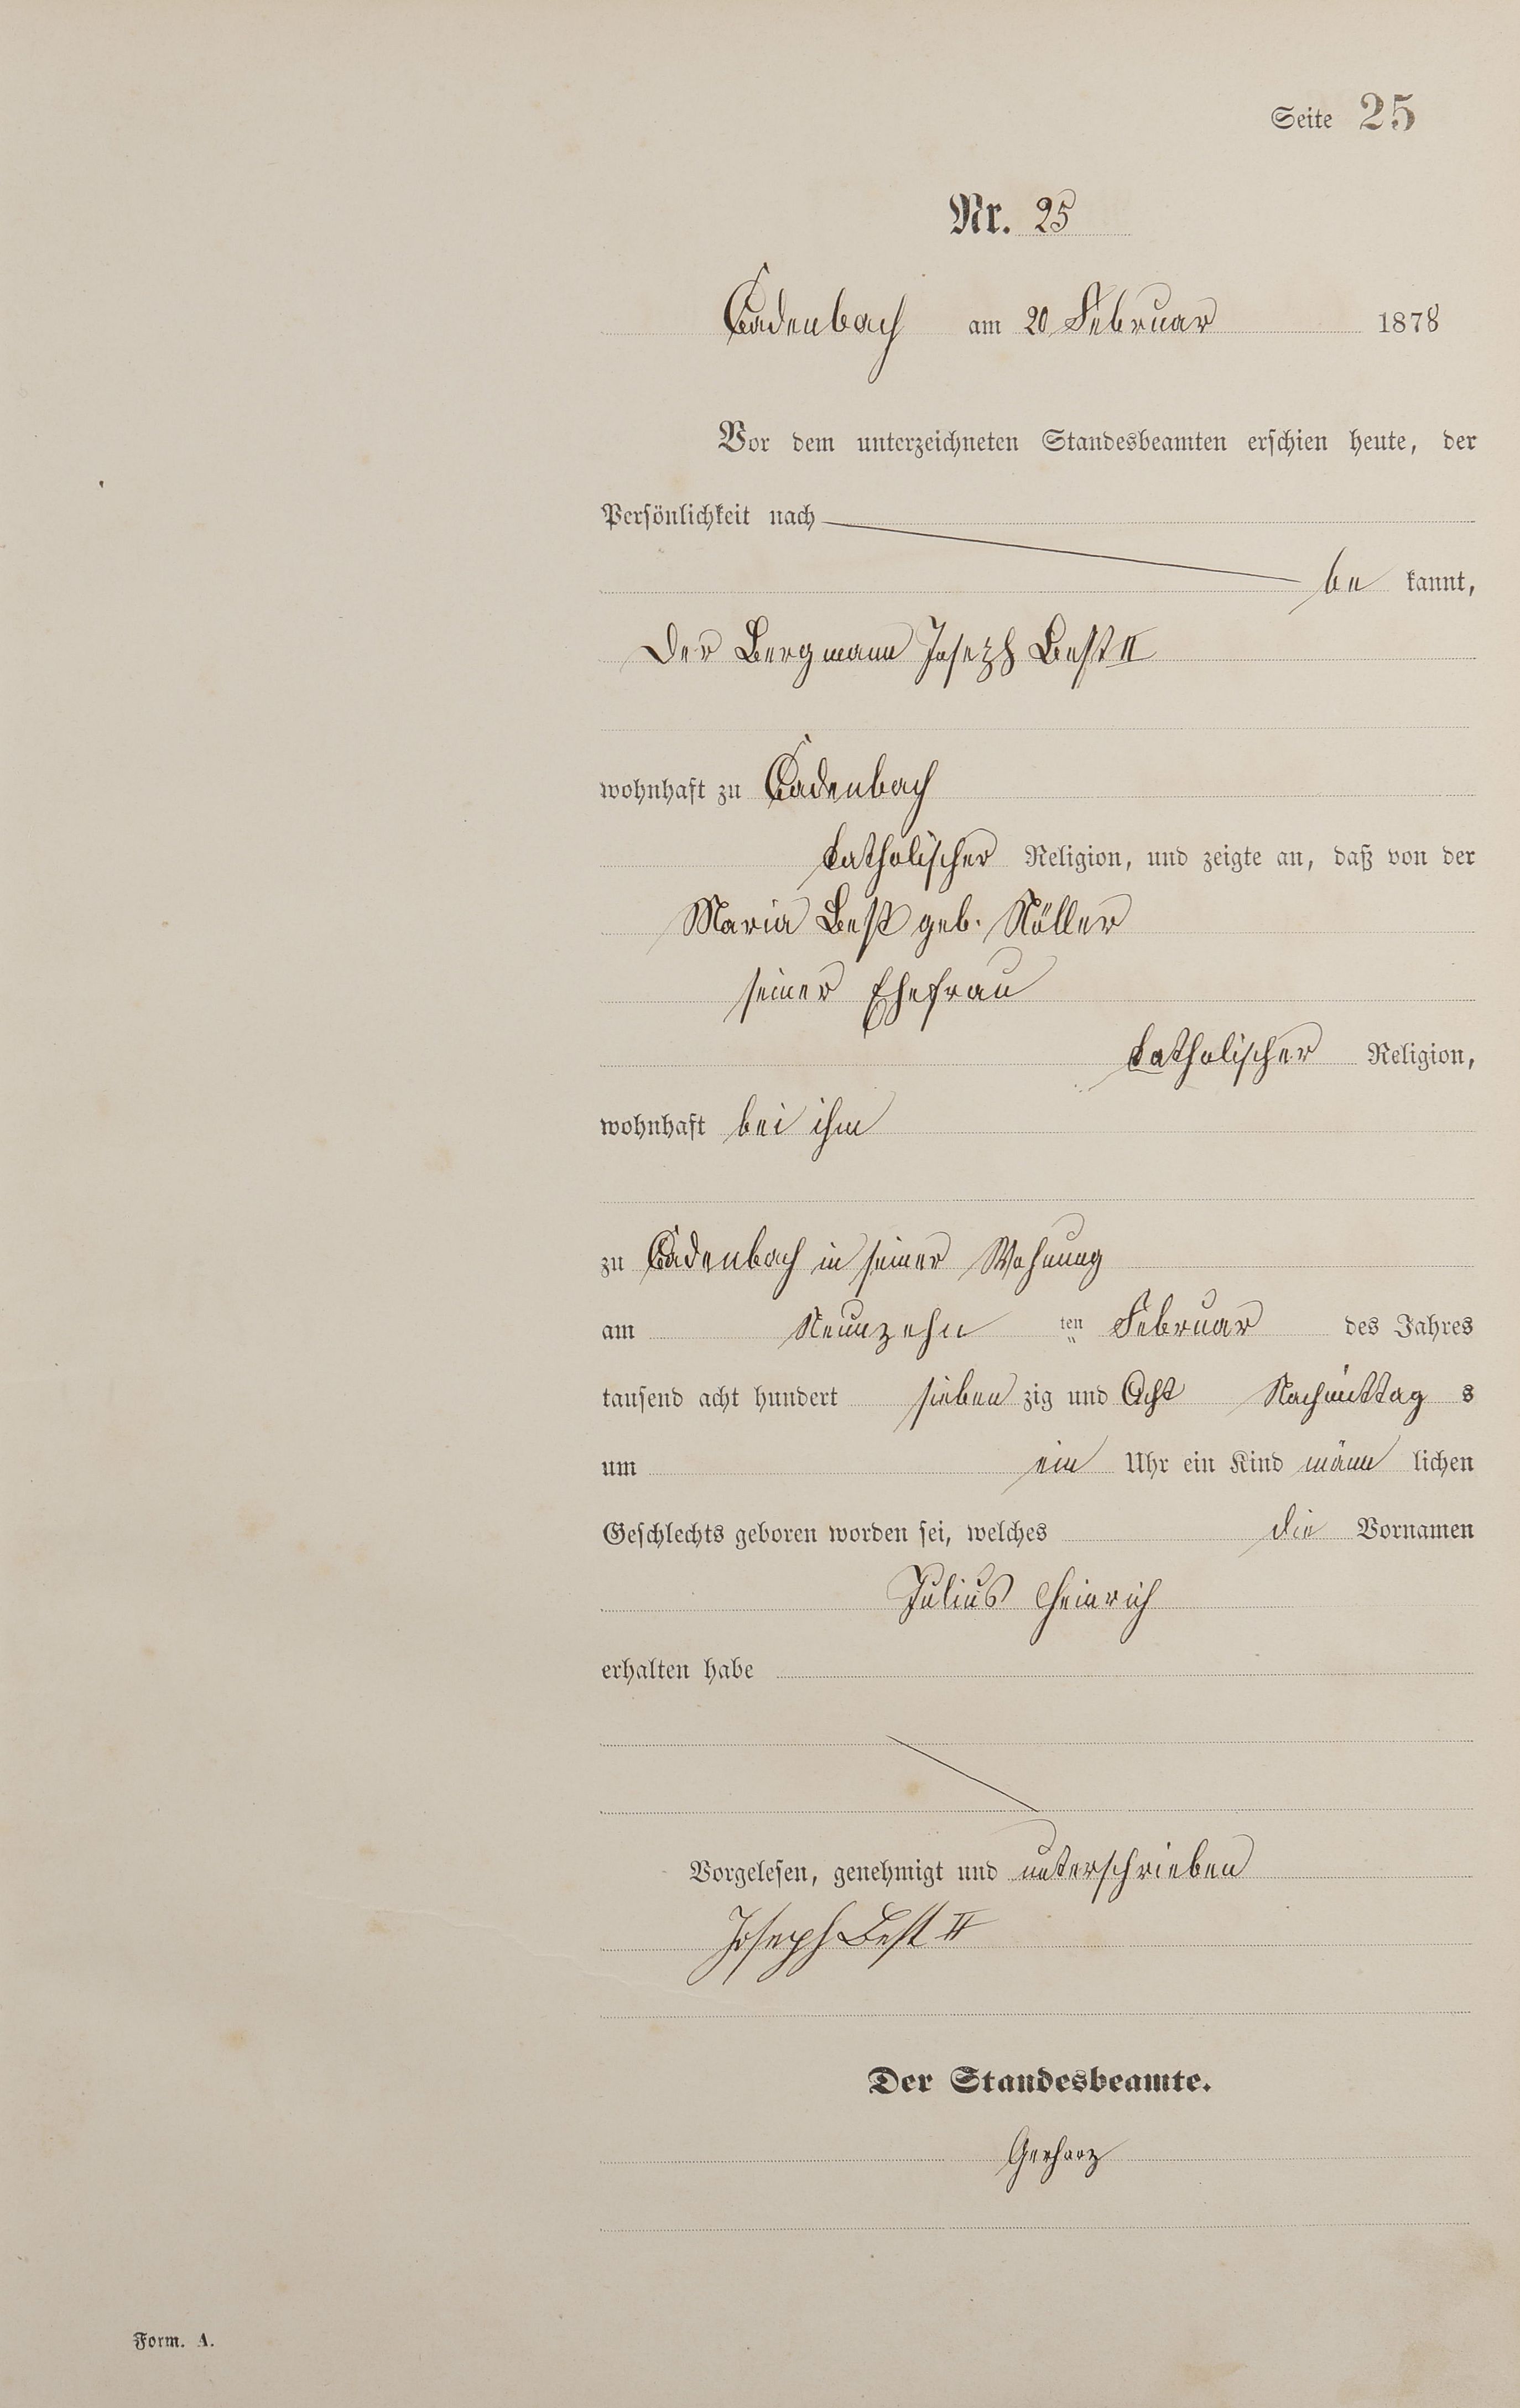 Seite 25
Nr. 25
Cadenbach am 20 Februar 1878
Vor dem unterzeichneten Standesbeamten erschien heute, der
Persönlichkeit nach
be kannt,
der Bergmann Joseph Best II
wohnhaft zu Cadenbach
katholischer Religion, und zeigte an, daß von der
Maria Best geb. Nöller
seiner Ehefrau
katholischer Religion,
wohnhaft bei ihm
zu Cadenbach in seiner Wohnung
am Neunzehn ten Februar des Jahres
tausend acht hundert sieben zig und Acht Nachmittag s
um ein Uhr ein Kind männ lichen
Geschlechts geboren worden sei, welches die Vornamen
Julius Heinrich
erhalten habe
Vorgelesen, genehmigt und unterschrieben
Joseph Best II
Der Standesbeamte.
Gerharz
Form. A.